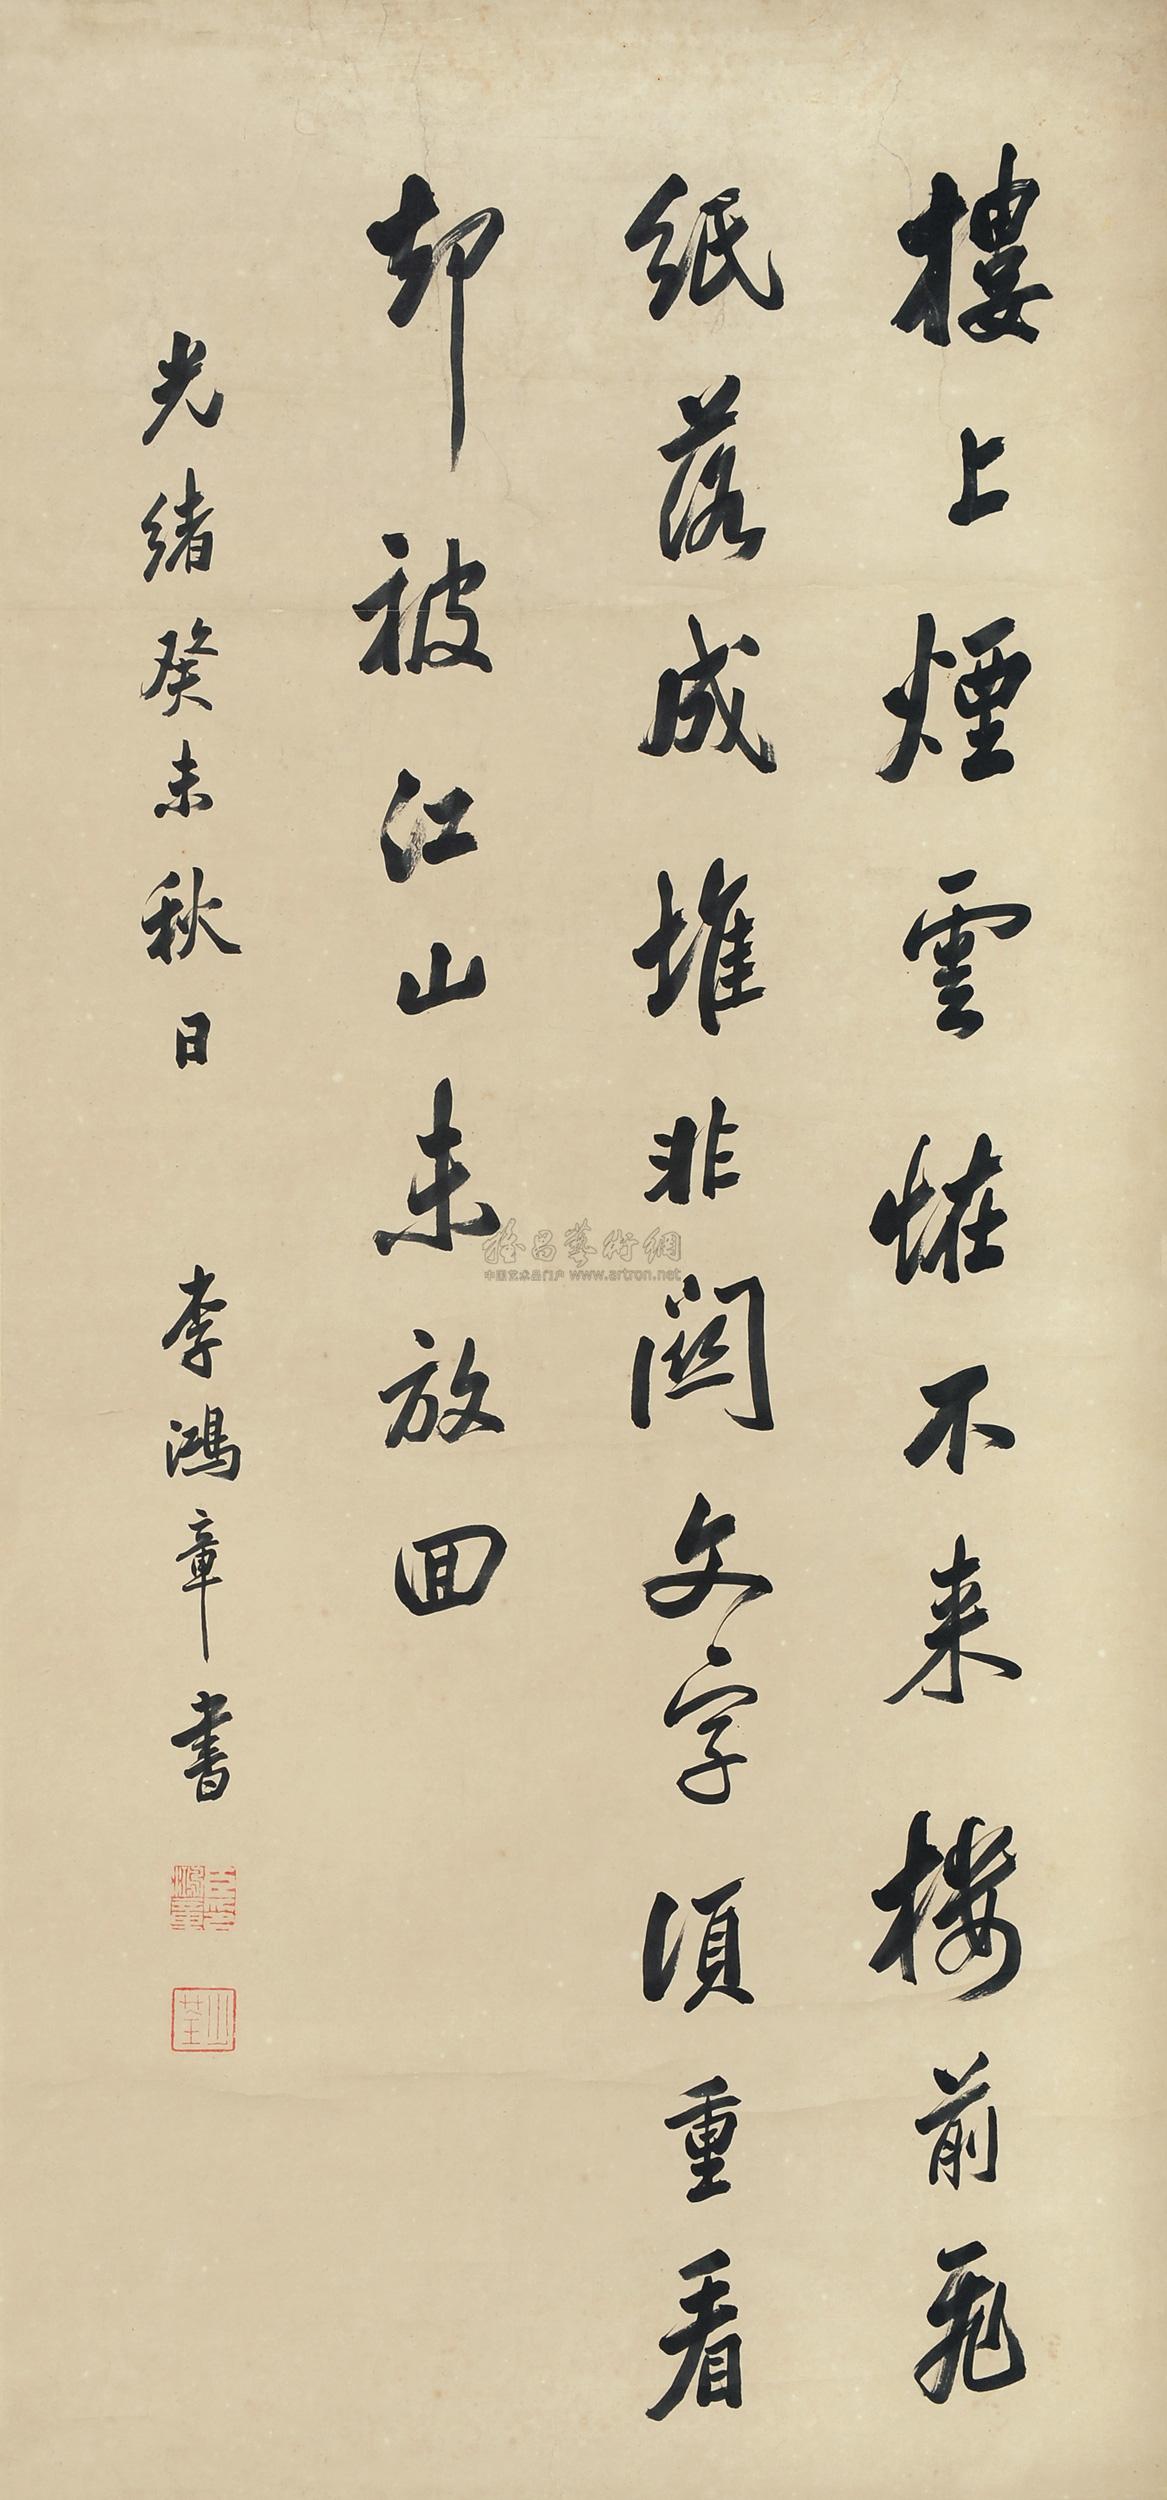 樓上煙雲恠不来楼前飛
纸落成堆非闗文字須重看
却被江山未放回
光绪癸未秋日 李鴻章書
雅昌藝術網
中国艺术品门户 www.artron.net